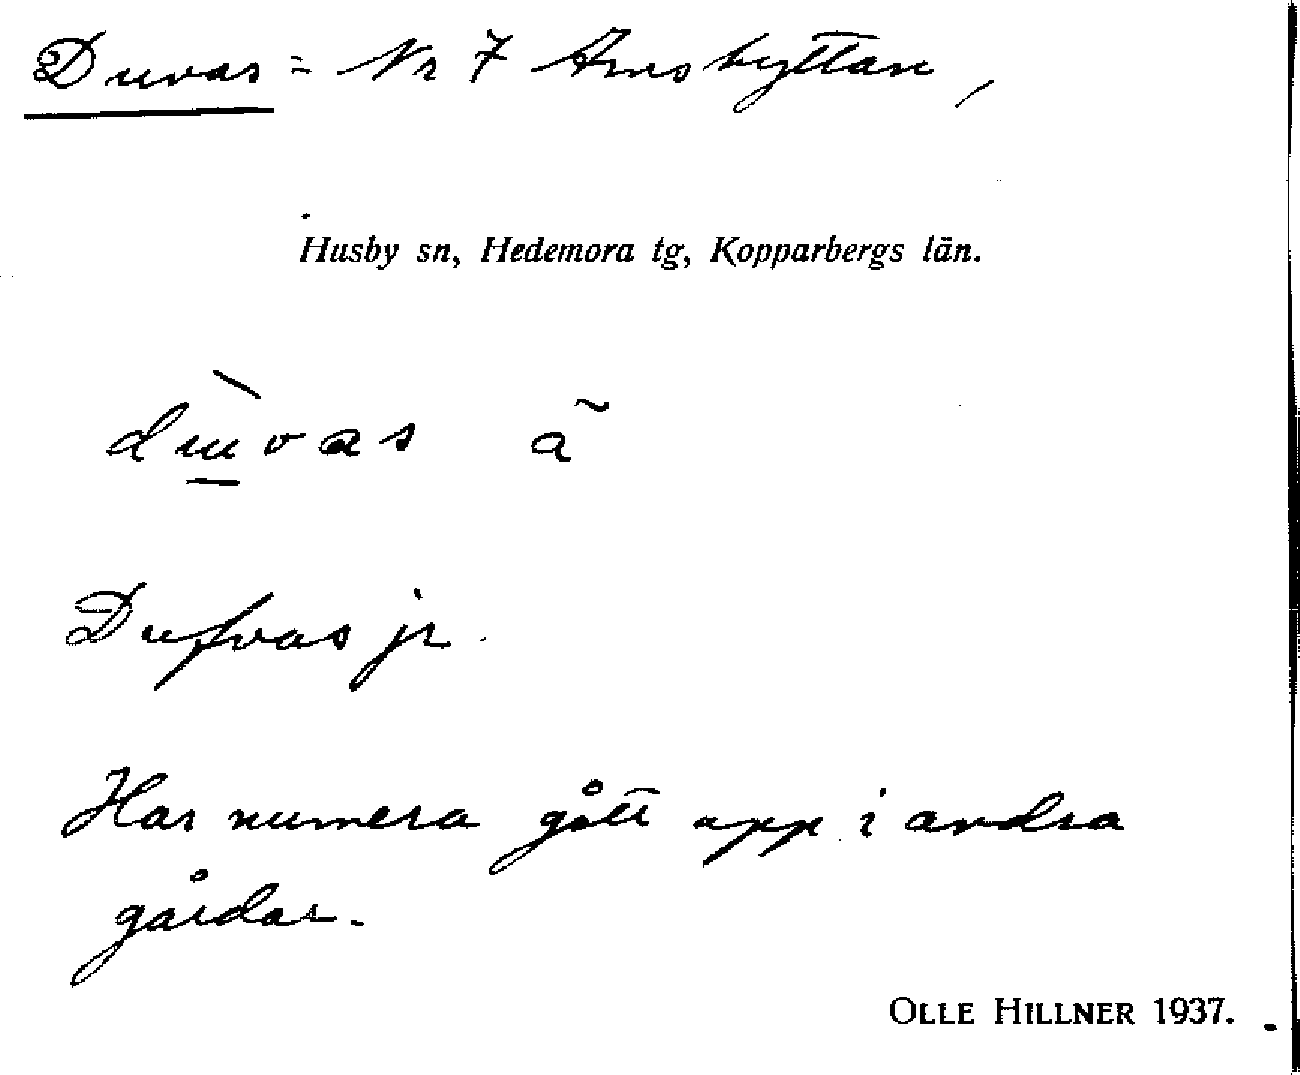 Duvas = Nr 7 Amsbyttan,
Husby sn, Hedemora tg, Kopparbergs län.
dùvas ã
Dufvas jr.
Har numera gått upp i andra
gårdar.
OLLE HILLNER 1937.